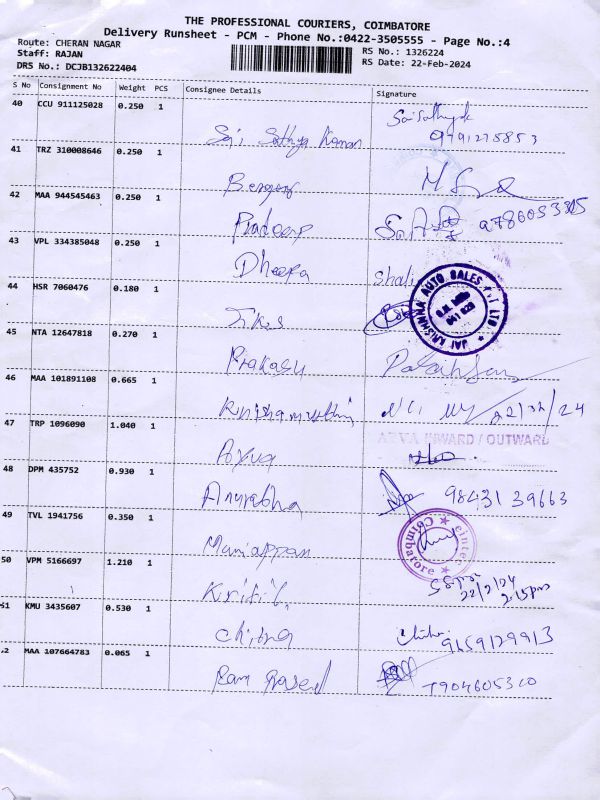 THE PROFESSIONAL COURIERS, COIMBATORE
Delivery Runsheet - PCM - Phone No.:0422-3505555 - Page No.:4
Route: CHERAN NAGAR
RS No.: 1326224
Staff: RAJAN
RS Date: 22-Feb-2024
DRS No.: DCJB132622404
S No Consignment No Weight PCS Consignee Details Signature
40 CCU 911125028 0.250 1
Sai Sathya
Sai Sathya Kannan
41 TRZ 310008646 0.250 1
42 MAA 944545463 0.250 1
Pradeep
43 VPL 334385048 0.250 1
Dheepa Shali
44 HSR 7060476 0.180 1
JAI KRISHNAA AUTO SALES PVT LTD
45 NTA 12647818 0.270 1
Prakash
46 MAA 101891108 0.665 1
22/02/24
47 TRP 1096090 1.040 1
INWARD / OUTWARD
48 DPM 435752 0.930 1
Anuratha 98431 39663
49 TVL 1941756 0.350 1
Coimbatore
Mariappan
50 VPM 5166697 1.210 1
22/2/24
2.15pm
51 KMU 3435607 0.530 1
Chitra Chitra 9659129913
MAA 107664783 0.065 1
Ram Prasad 7904605320